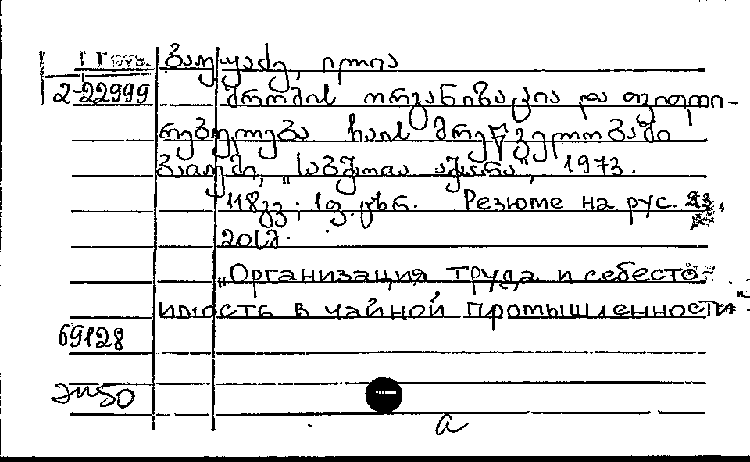 2-22999
შრომის ორგანიზაცია და თვითღი-
რებულება ჩაის მრეწველობაში
ბათუმი, „საბჭოთა აჭარა", 1973.
118 გვ; 1 ფ. ცხრ. Резюме на рус. яз.
20სმ.
„Организация труда и себесто-
имость в чайной промышленности"
69128
a